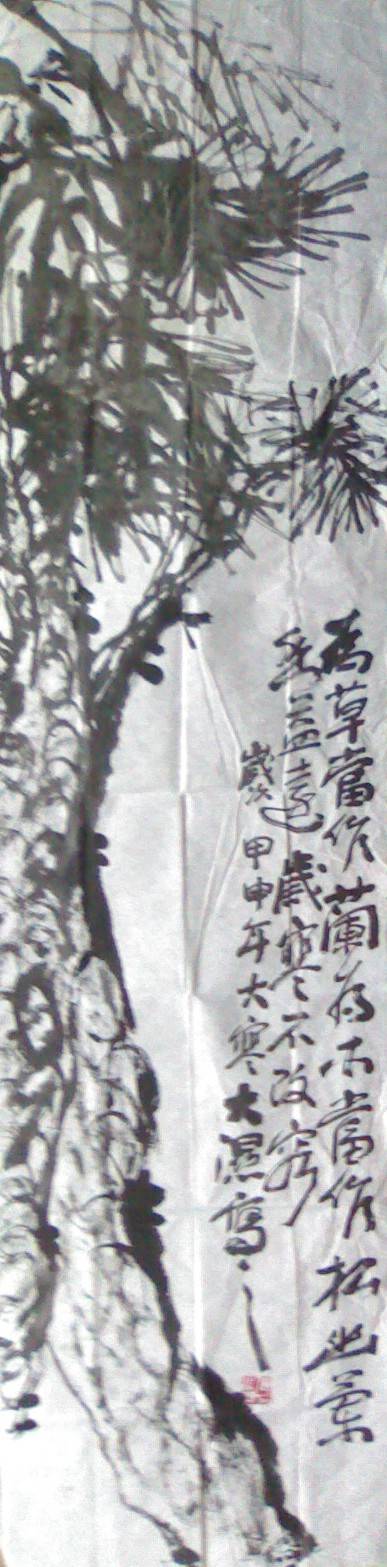 為草當作蘭為木當作松幽蘭
香益遠歲寒不改容
歲次甲申年大寒大濕寫之